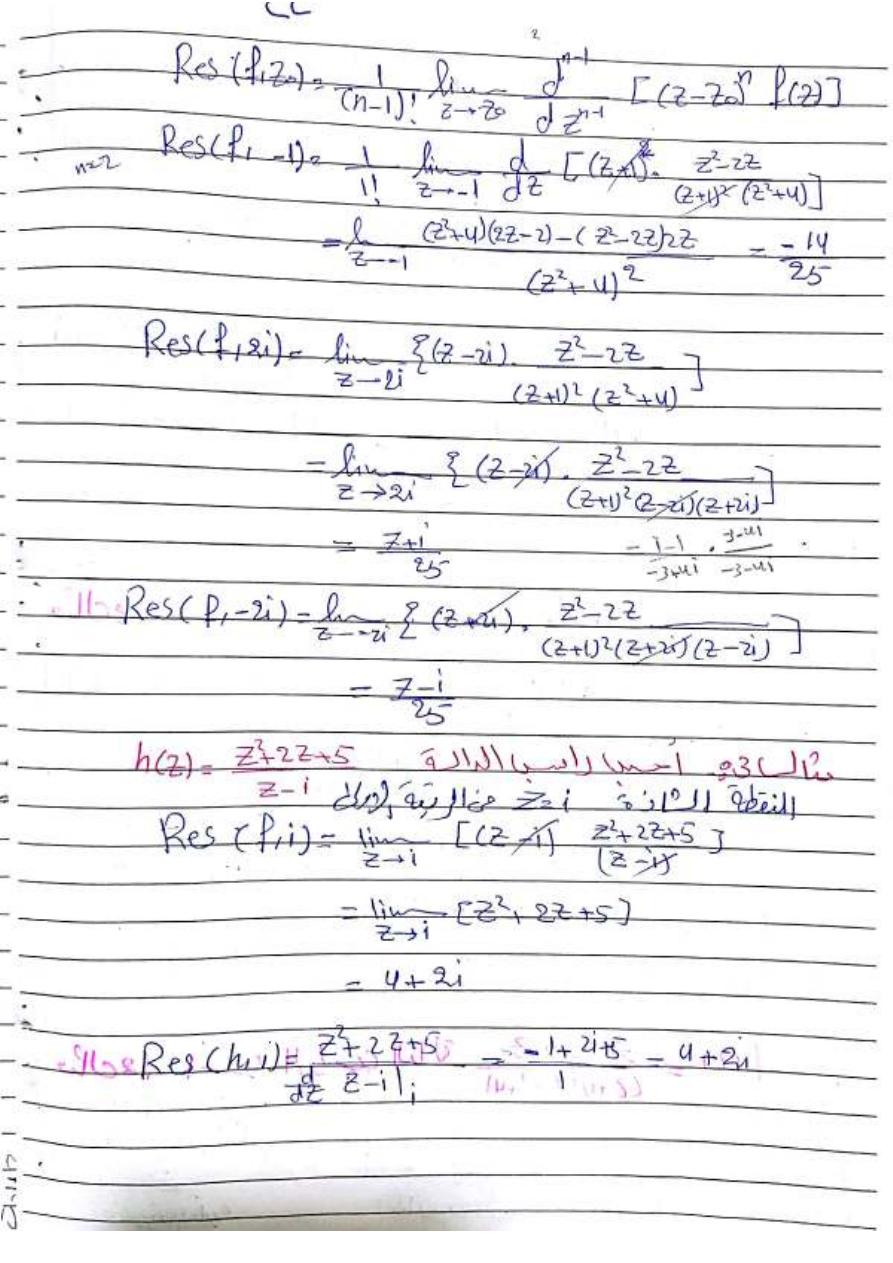 Res(f,z₀) = 1/(n-1)! lim z→z₀ d^(n-1)/dz^(n-1) [(z-z₀)^n f(z)]
n=2 Res(f,-1) = 1/1! lim z→-1 d/dz [(z+1)². z²-2z/(z+1)²(z²+4)]
= lim z→-1 (z²+4)(2z-2)-(z²-2z)2z/(z²+4)² = -14/25
Res(f,2i) = lim z→2i {(z-2i). z²-2z/(z+1)²(z²+4)]
= lim z→2i {(z-2i). z²-2z/(z+1)²(z-2i)(z+2i)]
= 7+i/25 -i-1/-3+4i . -3-4i/-3-4i
Res(f,-2i) = lim z→-2i {(z+2i). z²-2z/(z+1)²(z+2i)(z-2i)]
= 7-i/25
مثال 3: أحسب رواسب الدالة h(z) = z²+2z+5/z-i
النقطة الشاذة z=i من الرتبة الاولى
Res(f,i) = lim z→i [(z-i) z²+2z+5/(z-i)]
= lim z→i [z²+2z+5]
= 4+2i
Res(h,i) = z²+2z+5/d/dz z-i|i = -1+2i+5/1 = 4+2i